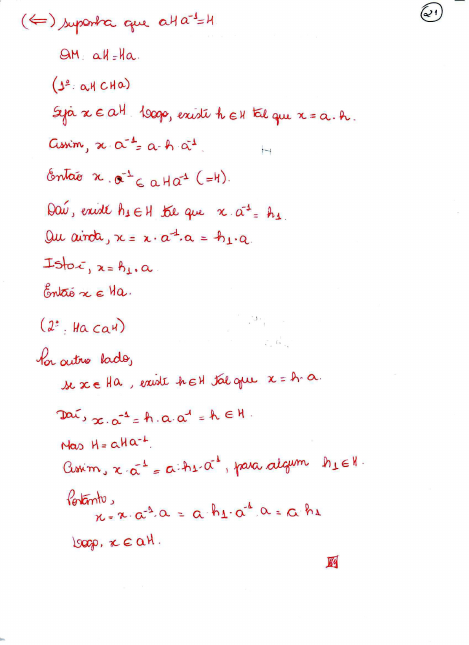 21
(⇐) suponha que aHa⁻¹=H
QM. aH=Ha.
(1º: aH⊂Ha)
Seja x ∈ aH. Logo, existe h ∈ H tal que x = a·h.
Assim, x·a⁻¹ = a·h·a⁻¹.
Então x·a⁻¹ ∈ aHa⁻¹ (=H).
Daí, existe h₁∈H tal que x·a⁻¹ = h₁.
Ou ainda, x = x·a⁻¹·a = h₁·a
Isto é, x = h₁·a
Então x ∈ Ha.
(2º: Ha⊂aH)
Por outro lado,
se x ∈ Ha, existe h∈H tal que x = h·a.
Daí, x·a⁻¹ = h·a·a⁻¹ = h ∈ H.
Mas H = aHa⁻¹.
Assim, x·a⁻¹ = a·h₁·a⁻¹, para algum h₁∈H.
Portanto,
x = x·a⁻¹·a = a·h₁·a⁻¹·a = a h₁
Logo, x ∈ aH.